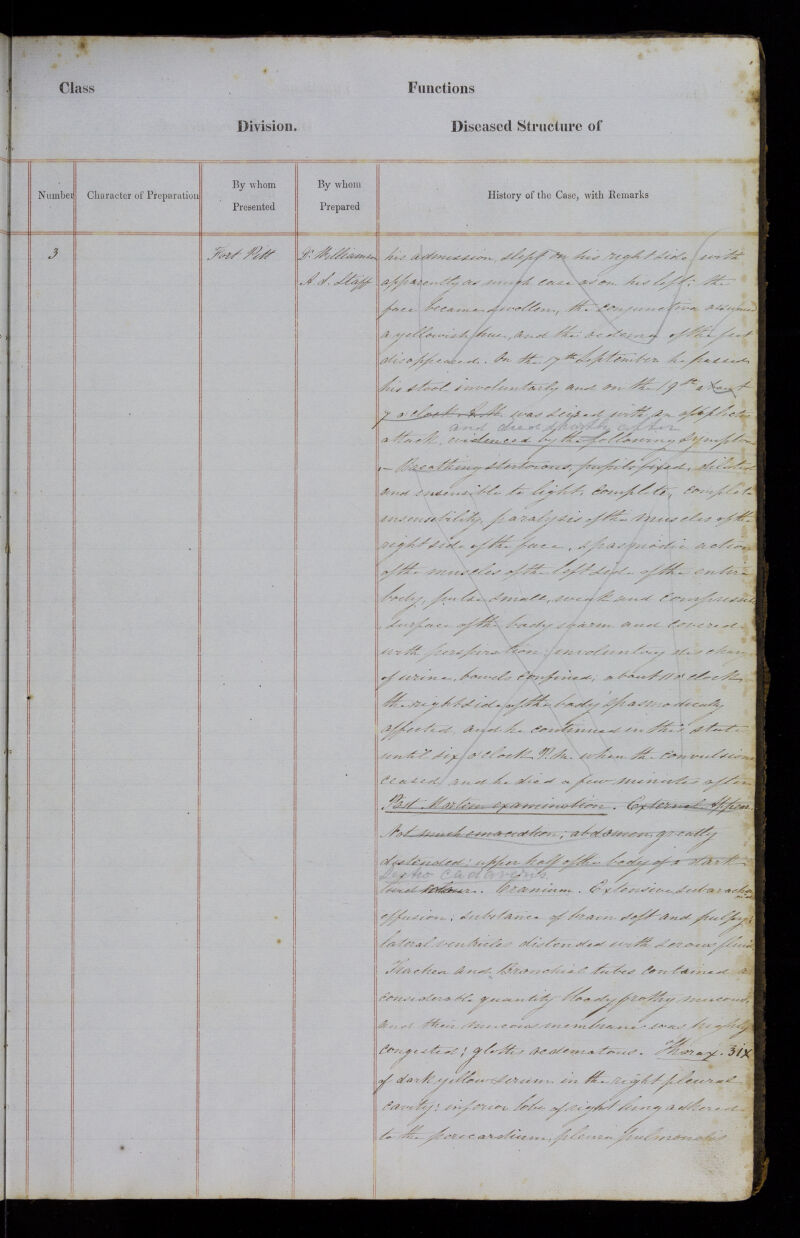 Class
Functions
Division.
Diseased Structure of
Number
Character of Preparation
By whom
Presented
By whom
Prepared
History of the Case, with Remarks
3
Fort Pitt
Dr. Williamson
A. S. Staff
his admission, slept on his right side with
apparently as much ease as on his left; the
face became swollen, the conjunctiva assumed
a yellowish hue, and the oedema of the feet
disappeared. On the 17th September he passed
his stool involuntarily and on the 19th about
7 o'clock was seized with an apoplectic
and died shortly after
attack, evidenced by the following symptoms
Breathing stertorous, pupils fixed, dilated
and insensible to light, complete, complete
insensibility, paralysis of the muscles of the
right side of the face, spasmodic action
of the muscles of the left side of the entire
body, pulse small, weak and compressible
surface of the body warm and covered
with perspiration, involuntary discharge
of urine, bowels confined; about 11 o'clock
the right side of the body spasmodically
affected, and he continued in this state
until six o'clock P.M. when the convulsions
ceased and he died a few minutes after
Post Mortem examination. External Appear.
Not much emaciation; abdomen greatly
distended; upper half of the body of a dark
Sectio Cadaveris.
livid colour. Cranium. Extensive subarachnoid
effusion; substance of brain soft and pulpy;
lateral ventricles distended with serous fluid
Trachea and Bronchial tubes contained a
considerable quantity bloody frothy mucous,
and their mucous membrane was highly
congested; glottis oedematous. Thorax. ℥ix
of dark yellow serum in the right pleural
cavity; inferior lobe of right lung adhered
to the pericardium, pleura pulmonalis